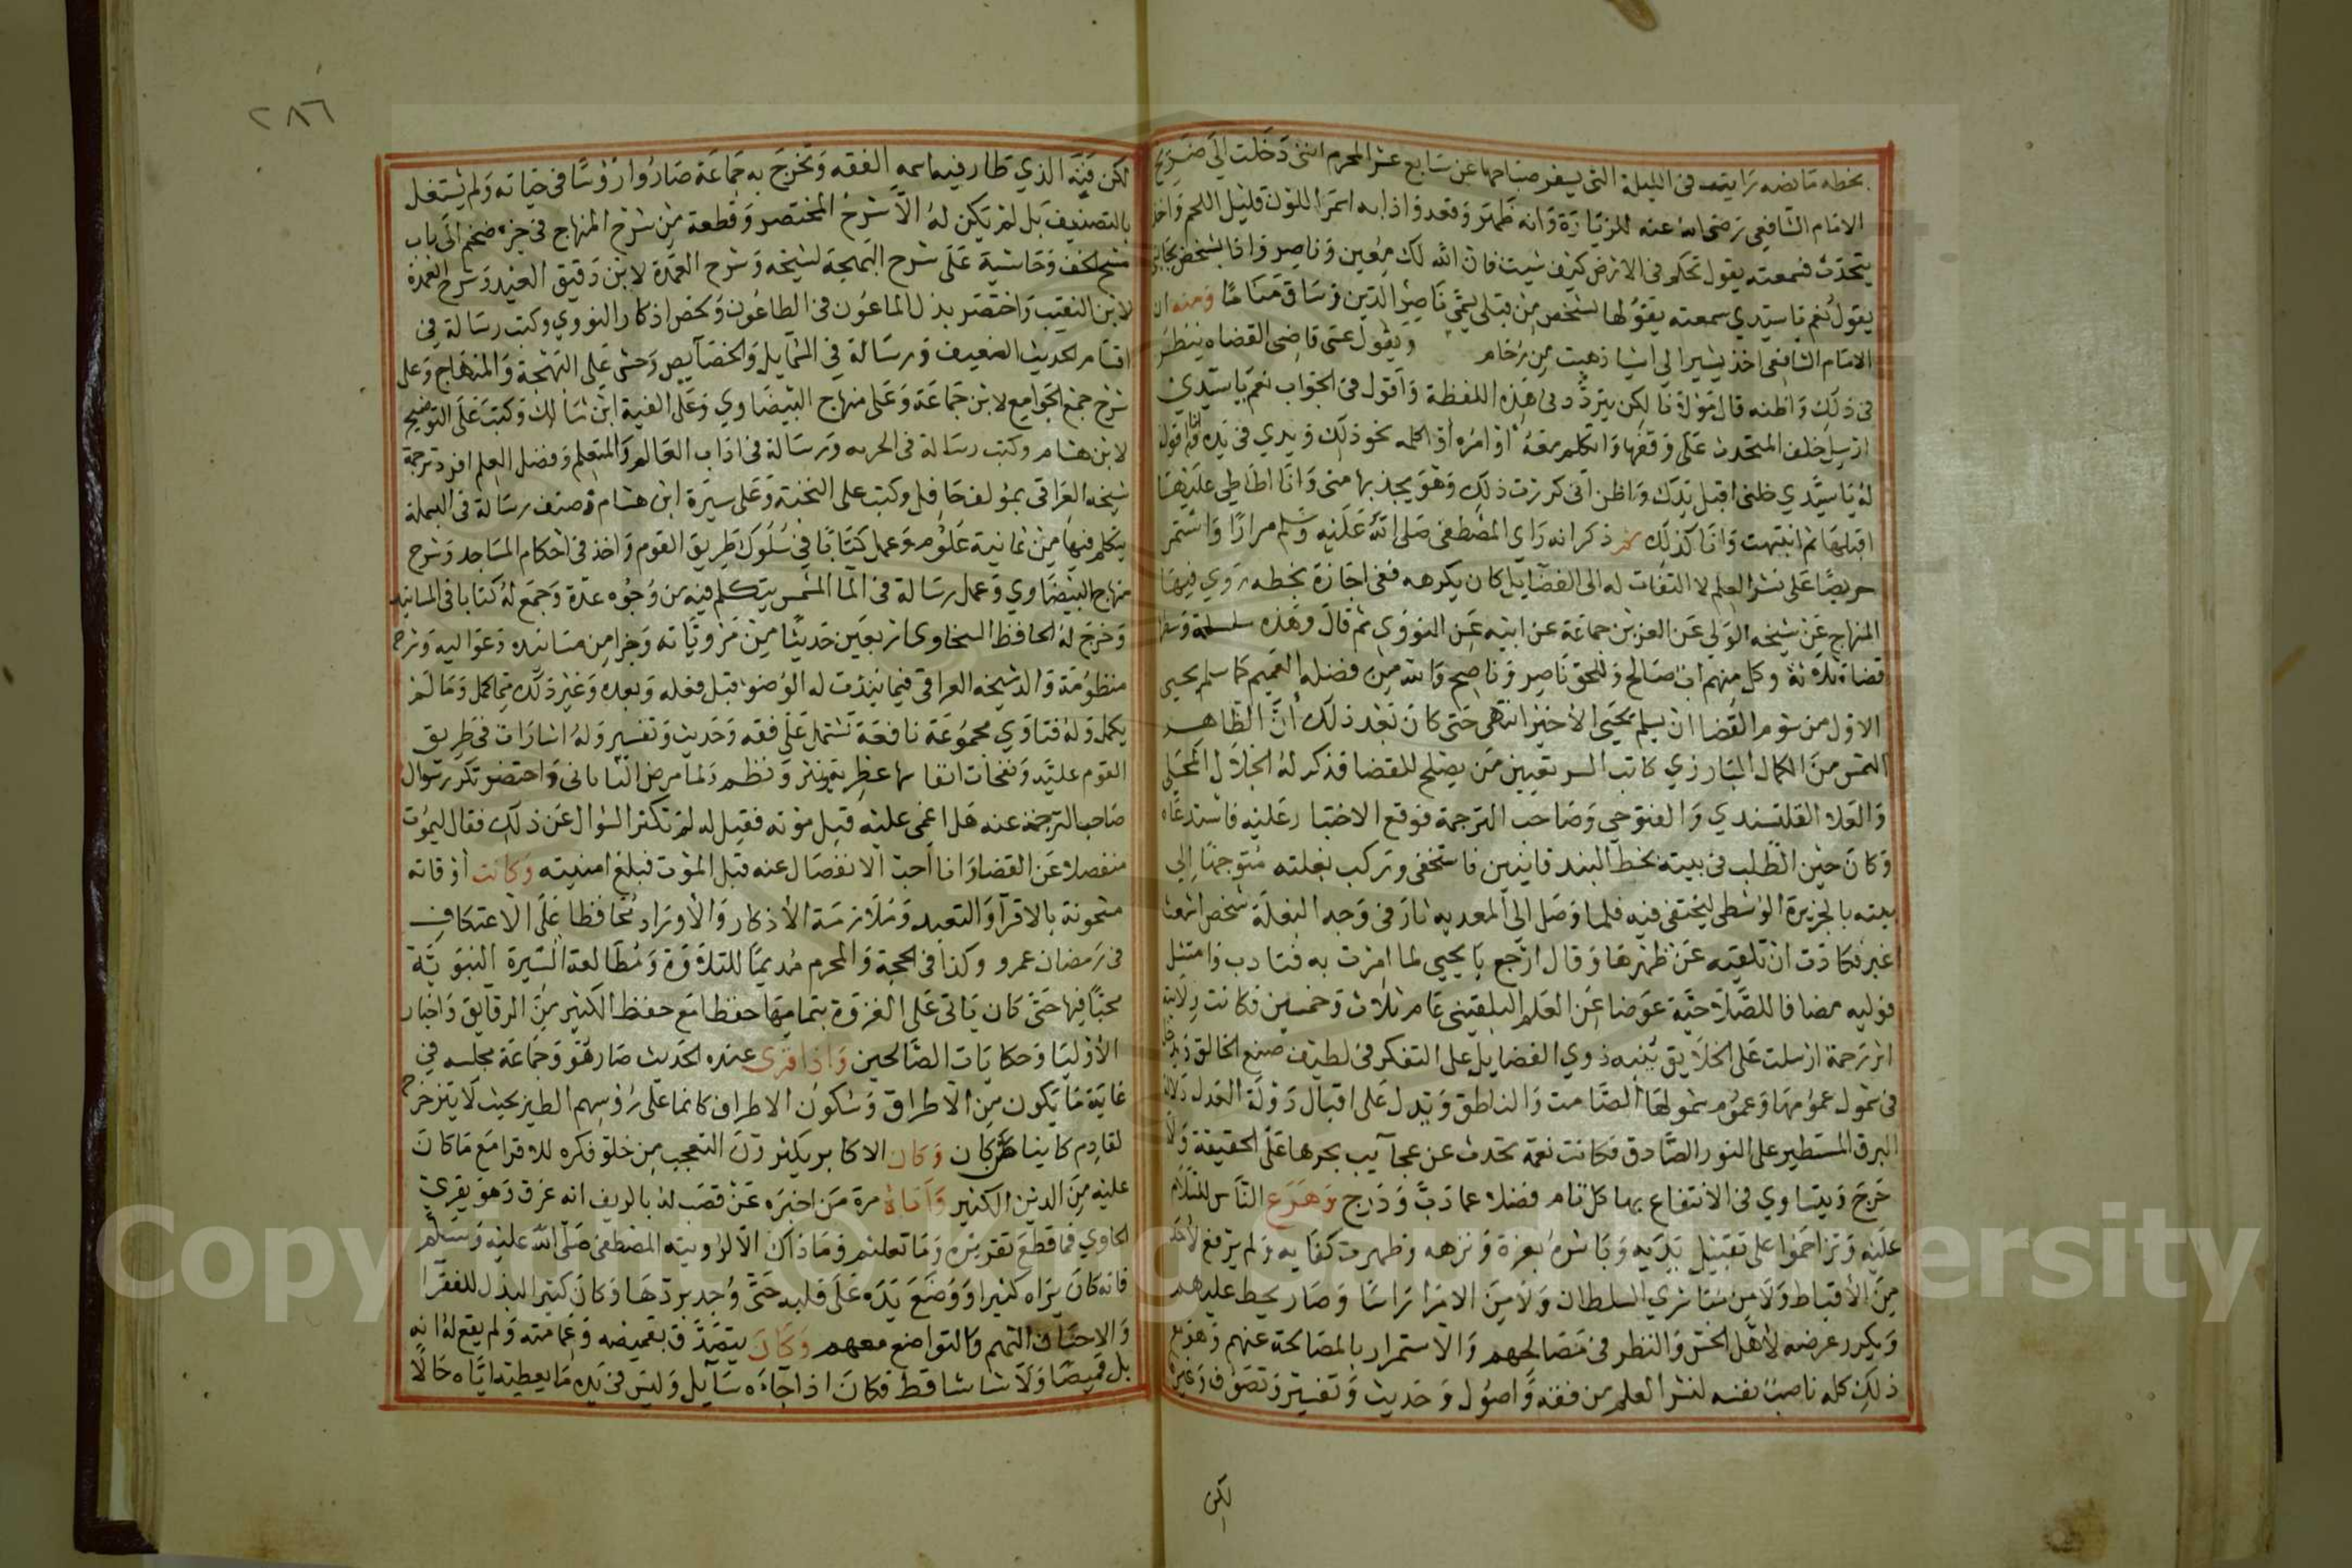 بخطه ما نصه رايت في الليلة التي يسفر صباحها عن سابع عشر المحرم انني دخلت الى ضريح
الامام الشافعي رضي الله عنه للزيارة وانه ظهر وقعد واذا به اسمر اللون قليل اللحم واخذ
يتحدث فسمعته يقول تحكم في الارض كيف شيت فان الله لك معين وناصر واذا بشخص بجانبي
يقول نعم يا سيدي سمعته يقولها لشخص من قبلي يسمى ناصر الدين وساق مناما ومنه ان
الامام الشافعي اخذ يشير الي اشيا ذهبت من رخام ويقول عسى قاضي القضاه ينظر
في ذلك واظنه قال مولانا لكن يتردد في هذه اللفظة واقول في الجواب نعم يا سيدي
ارسل خلف المتحدث على وقفها واتكلم معه او امره او اكلمه نحو ذلك ويدي في يده وانا اقول
له يا سيدي خلني اقبل يدك واظن اني كررت ذلك وهو يجذبها مني وانا اطاطي عليها
اقبلها ثم انتبهت وانا كذلك ثم ذكر انه راى المصطفى صلى الله عليه وسلم مرارا واستمر
حريصا على نشر العلم لا التفات له الى القضا بل كان يكرهه ففي اجازة بخطه روي فيها
المنهاج عن شيخه الولي عن العز بن جماعة عن ابيه عن النووي ثم قال وهذه سلسلة
قضاة ثلاثة وكل منهم ان صالح وللحق ناصر وناصح والله من فضله العميم كما سلم يحيى
الاول من شوم القضا ان يسلم يحيى الاخير انتهى حتى كان بعد ذلك ان الظاهر
التمس من الكمال البارزي كاتب السر تعيين من يصلح للقضا فذكر له الجلال المحلي
والعلا القلقشندي والفتوحي وصاحب الترجمة فوقع الاختيار عليه فاستدعاه
وكان حين الطلب في بيته بخط البندقانيين فاستخفى وركب بغلته متوجها الى
بيته بالجزيرة الوسطى ليختفي فيه فلما وصل الى المعديه ثار في وجه البغلة شخص اشعث
اغبر فكادت ان تلقيه عن ظهرها وقال ارجع يا يحيى لما امرت به فتادب وامتثل
فوليه مضافا للصلاحية عوضا عن العلم البلقيني عام ثلاث وخمسين فكانت ولايته
اثر رحمة ارسلت على الخلايق بنيه ذوي الفضايل على التفكر في لطيف صنع الخالق
في شمول عمومها وعموم شمولها الصامت والناطق ويدل على اقبال دولة العدل دلالة
البرق المستطير على النور الصادق فكانت نعمة تحدث عن عجايب بحرها على الحقيقة ولا
حرج ويتساوي في الانتفاع بها كل نام فضلا عما دب ودرج وهرع الناس للسلام
عليه وتزاحموا على تقبيل يديه وباشره بعزة ونزهه وظهرت كفايه ولم يرفع لاحد
من الاقباط ولا من مباشري السلطان ولا من الامرا راسا وصار يحط عليهم
ويكرر عرضه لاهل الحبس والنظر في مصالحهم والاستمرار بالمصالحة عنهم وهو مع
ذلك كله ناصب نفسه لنشر العلم من فقه واصول وحديث وتفسير وتصوف وغيره
لكن
٢٨٦
لكن فنه الذي طار فيه اسمه الفقه وتخرج به جماعة صاروا رؤسا في حياته ولم يشتغل
بالتصنيف بل لم يكن له الا شرح المختصر وقطعة من شرح المنهاج في جزء ضخم الى باب
مسح الخف وحاشية على شرح البهجة لشيخه وشرح العمدة لابن دقيق العيد وشرح العمدة
لابن النقيب واختصر بذل الماعون في الطاعون ولخص اذكار النووي وكتب رسالة في
اقسام الحديث الضعيف ورسالة في الشمايل والخصايص وحشى على البهجة والمنهاج وعلى
شرح جمع الجوامع لابن جماعة وعلى منهاج البيضاوي وعلى الفية ابن مالك وكتب على التوضيح
لابن هشام وكتب رسالة في الحربه ورسالة في اداب العالم والمتعلم وفضل العلم افرد ترجمة
شيخه العراقي بمؤلف حافل وكتب على النخبة وعلى سيرة ابن هشام وصنف رسالة في البسملة
يتكلم فيها من ثمانية علوم وعمل كتابا في سلوك طريق القوم واخذ في احكام المساجد وشرح
منهاج البيضاوي وعمل رسالة في الما المشمس يتكلم فيه من وجوه عدة وجمع له كتابا في المسانيد
وخرج له الحافظ السخاوي اربعين حديثا من مروياته وجزا من مسانيده وعواليه وشرح
منظومة والد شيخه العراقي فيما يندت له الوضو قبل فعله وبعده وغير ذلك مما كمل وما لم
يكمل وله فتاوي مجموعة نافعة تشتمل على فقه وحديث وتفسير وله اشارات في طريق
القوم عليه ونفحات انفاسها عطرية ونثر ونظم ولما مرض القاياتي واحتضر تكرر سؤال
صاحب الترجمة عنه هل اغمي عليه قبل موته فقيل له لم تكثر السؤال عن ذلك فقال ليموت
منفصلا عن القضا وانا احب الانفصال عنه قبل الموت فبلغ امنيته وكانت اوقاته
مشحونة بالاقرآ والتعبد وملازمة الاذكار والاوراد محافظا على الاعتكاف
في رمضان عمره وكذا في الحجة والمحرم مديما للتلاوة ومطالعة السيرة النبوية
محبا فيها حتى كان ياتي على الغزوة بتمامها حفظا مع حفظ الكثير من الرقايق واخبار
الاوليا وحكايات الصالحين واذا قرى عنده الحديث صار هو وجماعة مجلسه في
غاية ما يكون من الاطراق وسكون الاطراف كانما على رؤسهم الطير بحيث لا يتزحزح
لقادم كاينا من كان وكان الاكابر يكثرون التعجب من خلو فكره للاقرا مع ما كان
عليه من الدين الكثير واتاه مرة من اخبره عن قصب له بالريف انه غرق وهو يقرئ
الحاوي فما قطع تقريره وما تعلثم وما ذاك الا لرويته المصطفى صلى الله عليه وسلم
فانه كان يراه كثيرا ووضع يده على قلبه حتى وجد بردها وكان كثير البذل للفقرا
والاحسان اليهم والتواضع معهم وكان يتصدق بقميصه وعمامته ولم يقع له انه
بل قميصا ولا شاشا قط فكان اذا جاءه سايل وليس في يده ما يعطيه اياه حالا
Copyright © King Saud University